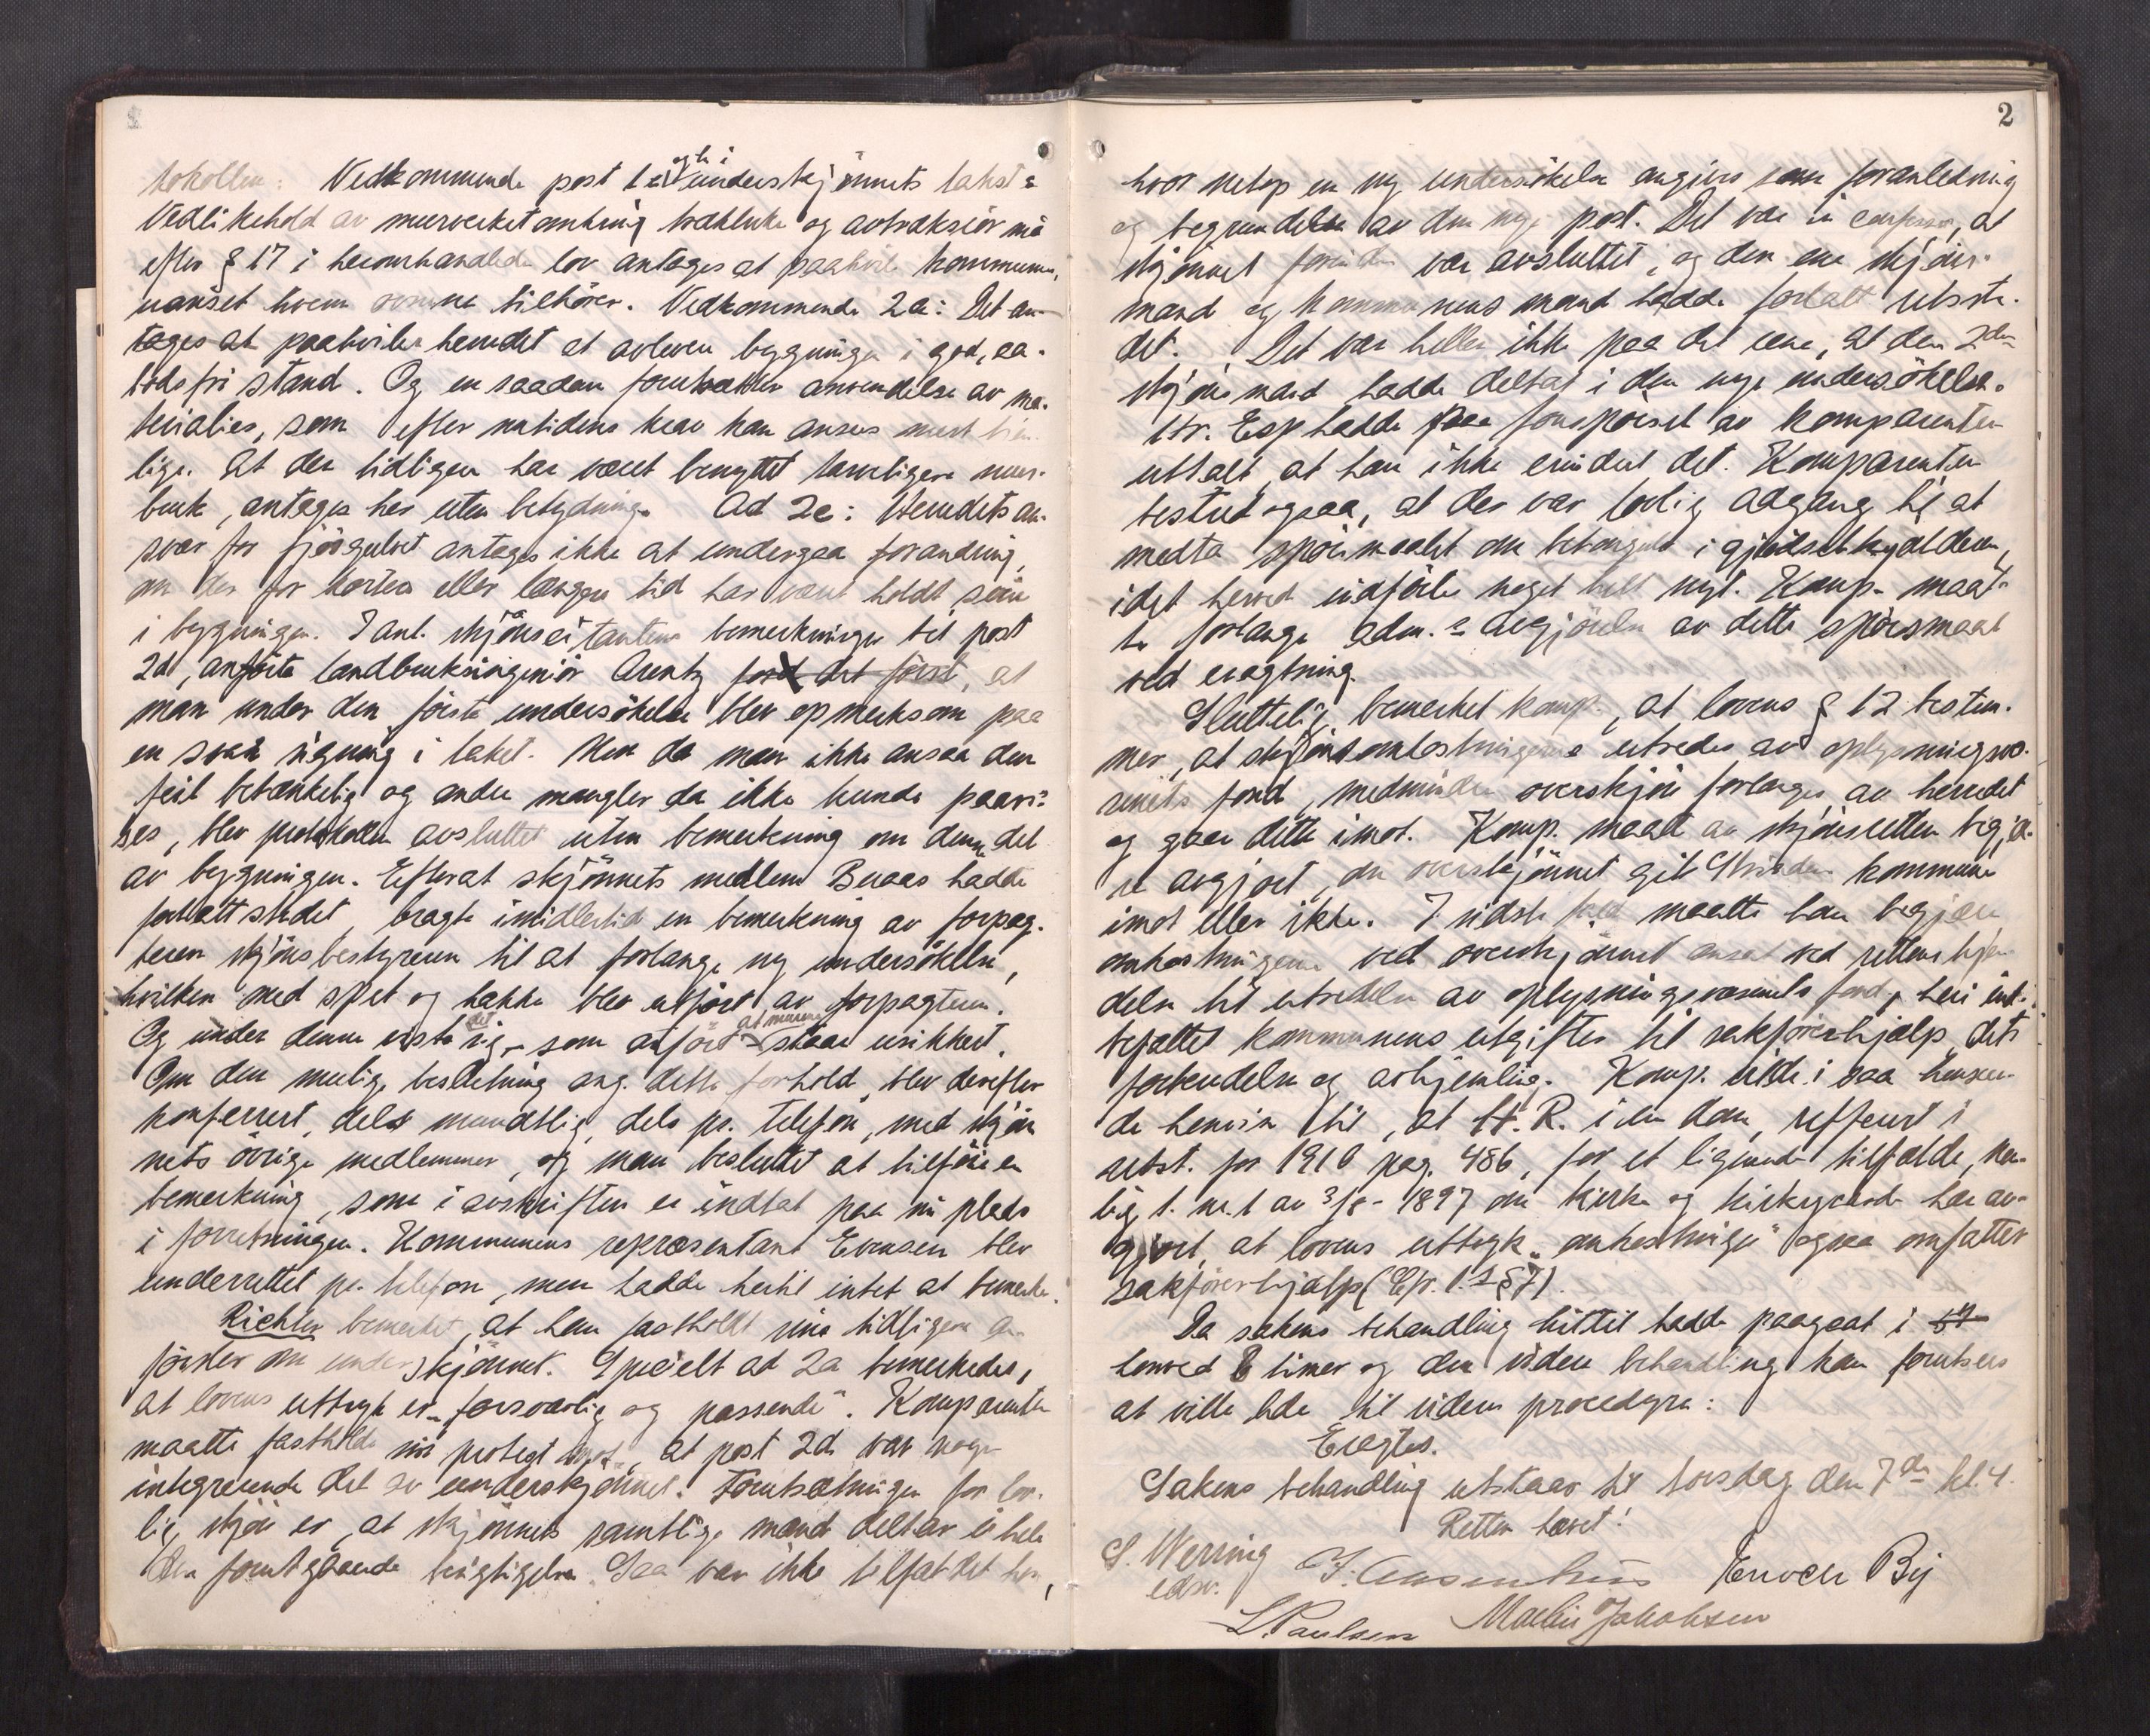 tokollen: Vedkommende post 1 e og h i underskjønnets takst:
Vedlikehold av murverket omkring trækluke og avtræksrör må
efter § 17 i heromhandlede lov antages at paahvile kommunen,
uanset hvem ovnene tilhörer. Vedkommende 2a: Det an-
tages at paahvile herredet at avlevere bygningen i god, aa-
bodsfri stand. Og en saadan forutsætter anvendelse av ma-
terialier, som efter nutidens krav kan ansees mest tjen-
lige. At der tidligere har været benyttet tarveligere mur-
bruk, antages her uten betydning. Ad 2c: Herredets an-
svar for fjösgulvet antages ikke at undergaa forandring,
om der for kortere eller længere tid har været holdt svin
i bygningen. I anl. skjönscitantens bemerkninger til post
2d, anförte landbruksingeniör Arentz ford det först, at
man under den förste undersökelse blev opmerksom paa
en svak signing i taket. Men da man ikke ansaa den
feil betænkelig og andre mangler da ikke kunde paavi-
ses, blev protokollen avsluttet uten bemerkning om denne del
av bygningen. Efterat skjönnets medlem Buaas hadde
forlatt stedet, bragte imidlertid en bemerkning av forpag-
teren skjönsbestyreren til at forlange ny undersökelse,
hvilken med spet og hakke blev utfört av forpagteren.
Og under denne viste det sig, som anfört at muren staar usikkert.
Om den mulige beslutning ang. dette forhold, blev derefter
konferert, dels mundtlig, dels pr. telefon, med skjön-
nets övrige medlemmer, og man besluttet at tilföie en
bemerkning, som i avskriften er indtat paa sin plads
i forretningen. Kommunens repræsentant Evensen blev
underrettet pr. telefon, men hadde hertil intet at bemerke.
Richter bemerket, at han fastholdt sine tidligere an-
försler om underskjönnet. Specielt ad 2a bemerkedes,
at lovens uttryk er "forsvarlig og passende". Komparenten
maatte fastholde sin protest mot, at post 2d var nogen
integrerende del av underskjönnet. Forutsætningen for lov-
lig skjön er, at skjönnets samtlige mænd deltar i hele
den forutgaaende besigtigelse. Saa var ikke tilfældet her,
2
hvor netop en ny undersökelse angives som foranledning
og begrundelse av den nye post. Det var in confesso, at
skjönnet forinden var avsluttet, og den ene skjöns-
mand og kommunens mand hadde forlatt utste-
det. Det var heller ikke paa det rene, at den 2den
skjönsmand hadde deltat i den nye undersökelse.
Hr. Esp hadde paa forespörsel av komparenten
uttalt, at han ikke erindret det. Komparenten
bestred ogsaa, at der var lovlig adgang til at
medta spörsmaalet om betongulv i gjödselkjælderen,
idet herved indförtes noget helt nyt. Komp. maat-
te forlange adm.s avgjörelse av dette spörsmaal
ved eragtning.
Sluttelig bemerket komp., at lovens § 12 bestem-
mer, at skjönsomkostningene utredes av oplysningsvæ-
senets fond, medmindre overskjön forlanges av herredet
og gaar dette imot. Komp. maatte av skjönsretten begjæ-
re avgjort, om overskjönnet gik Strinden kommune
imot eller ikke. I sidste fald maatte han begjære
omkostningene ved overskjönnet ansat ved rettens kjen-
delse til utredelse av oplysningsvæsenets fond, heri indi-
befattet kommunens utgifter til sakförerhjælp, dets
forkyndelse og avhjemling. Komp. viste i saa henseen-
de henvise til, at H. R. i en dom, referert i
retst. for 1910 pag. 486, for et lignende tilfælde, nem-
lig l. nr. 1 av 3/8-1897 om kirker og kirkegaarde har av-
gjort, at lovens uttryk "omkostninger" ogsaa omfatter
sakförerhjælp (Cfr. l.s § 7).
Da sakens behandling hittil hadde paagaat i 57
henved 8 timer og den videre behandling kan forutsees
at ville lede til videre procedyre:
Eragtes.
Sakens behandling utstaar til torsdag den 7de kl. 4.
Retten hævet!
S. Werring
edsv.
J. Aasenhus Enoch By
L. Paulsen Martin Jakobsen